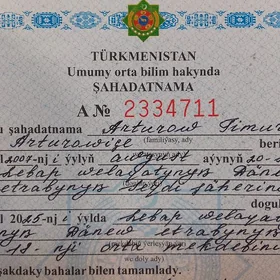 TÜRKMENISTAN
Umumy orta bilim hakynda
ŞAHADATNAMA
A № 2334711
şahadatnama Arturow Timur
(familiýasy, ady
Arturowiçe beri
-nji ýylyň awgust aýynyň 20-
Lebap welaýatynyň Dänew
etrabynyň Seýdi şäherin
dogul
2025-nji ýylda Lebap welaýat
nyň Dänew etrabynyň
18-nji orta mekdebin
we doly ady)
şakdaky bahalar bilen tamamlady.